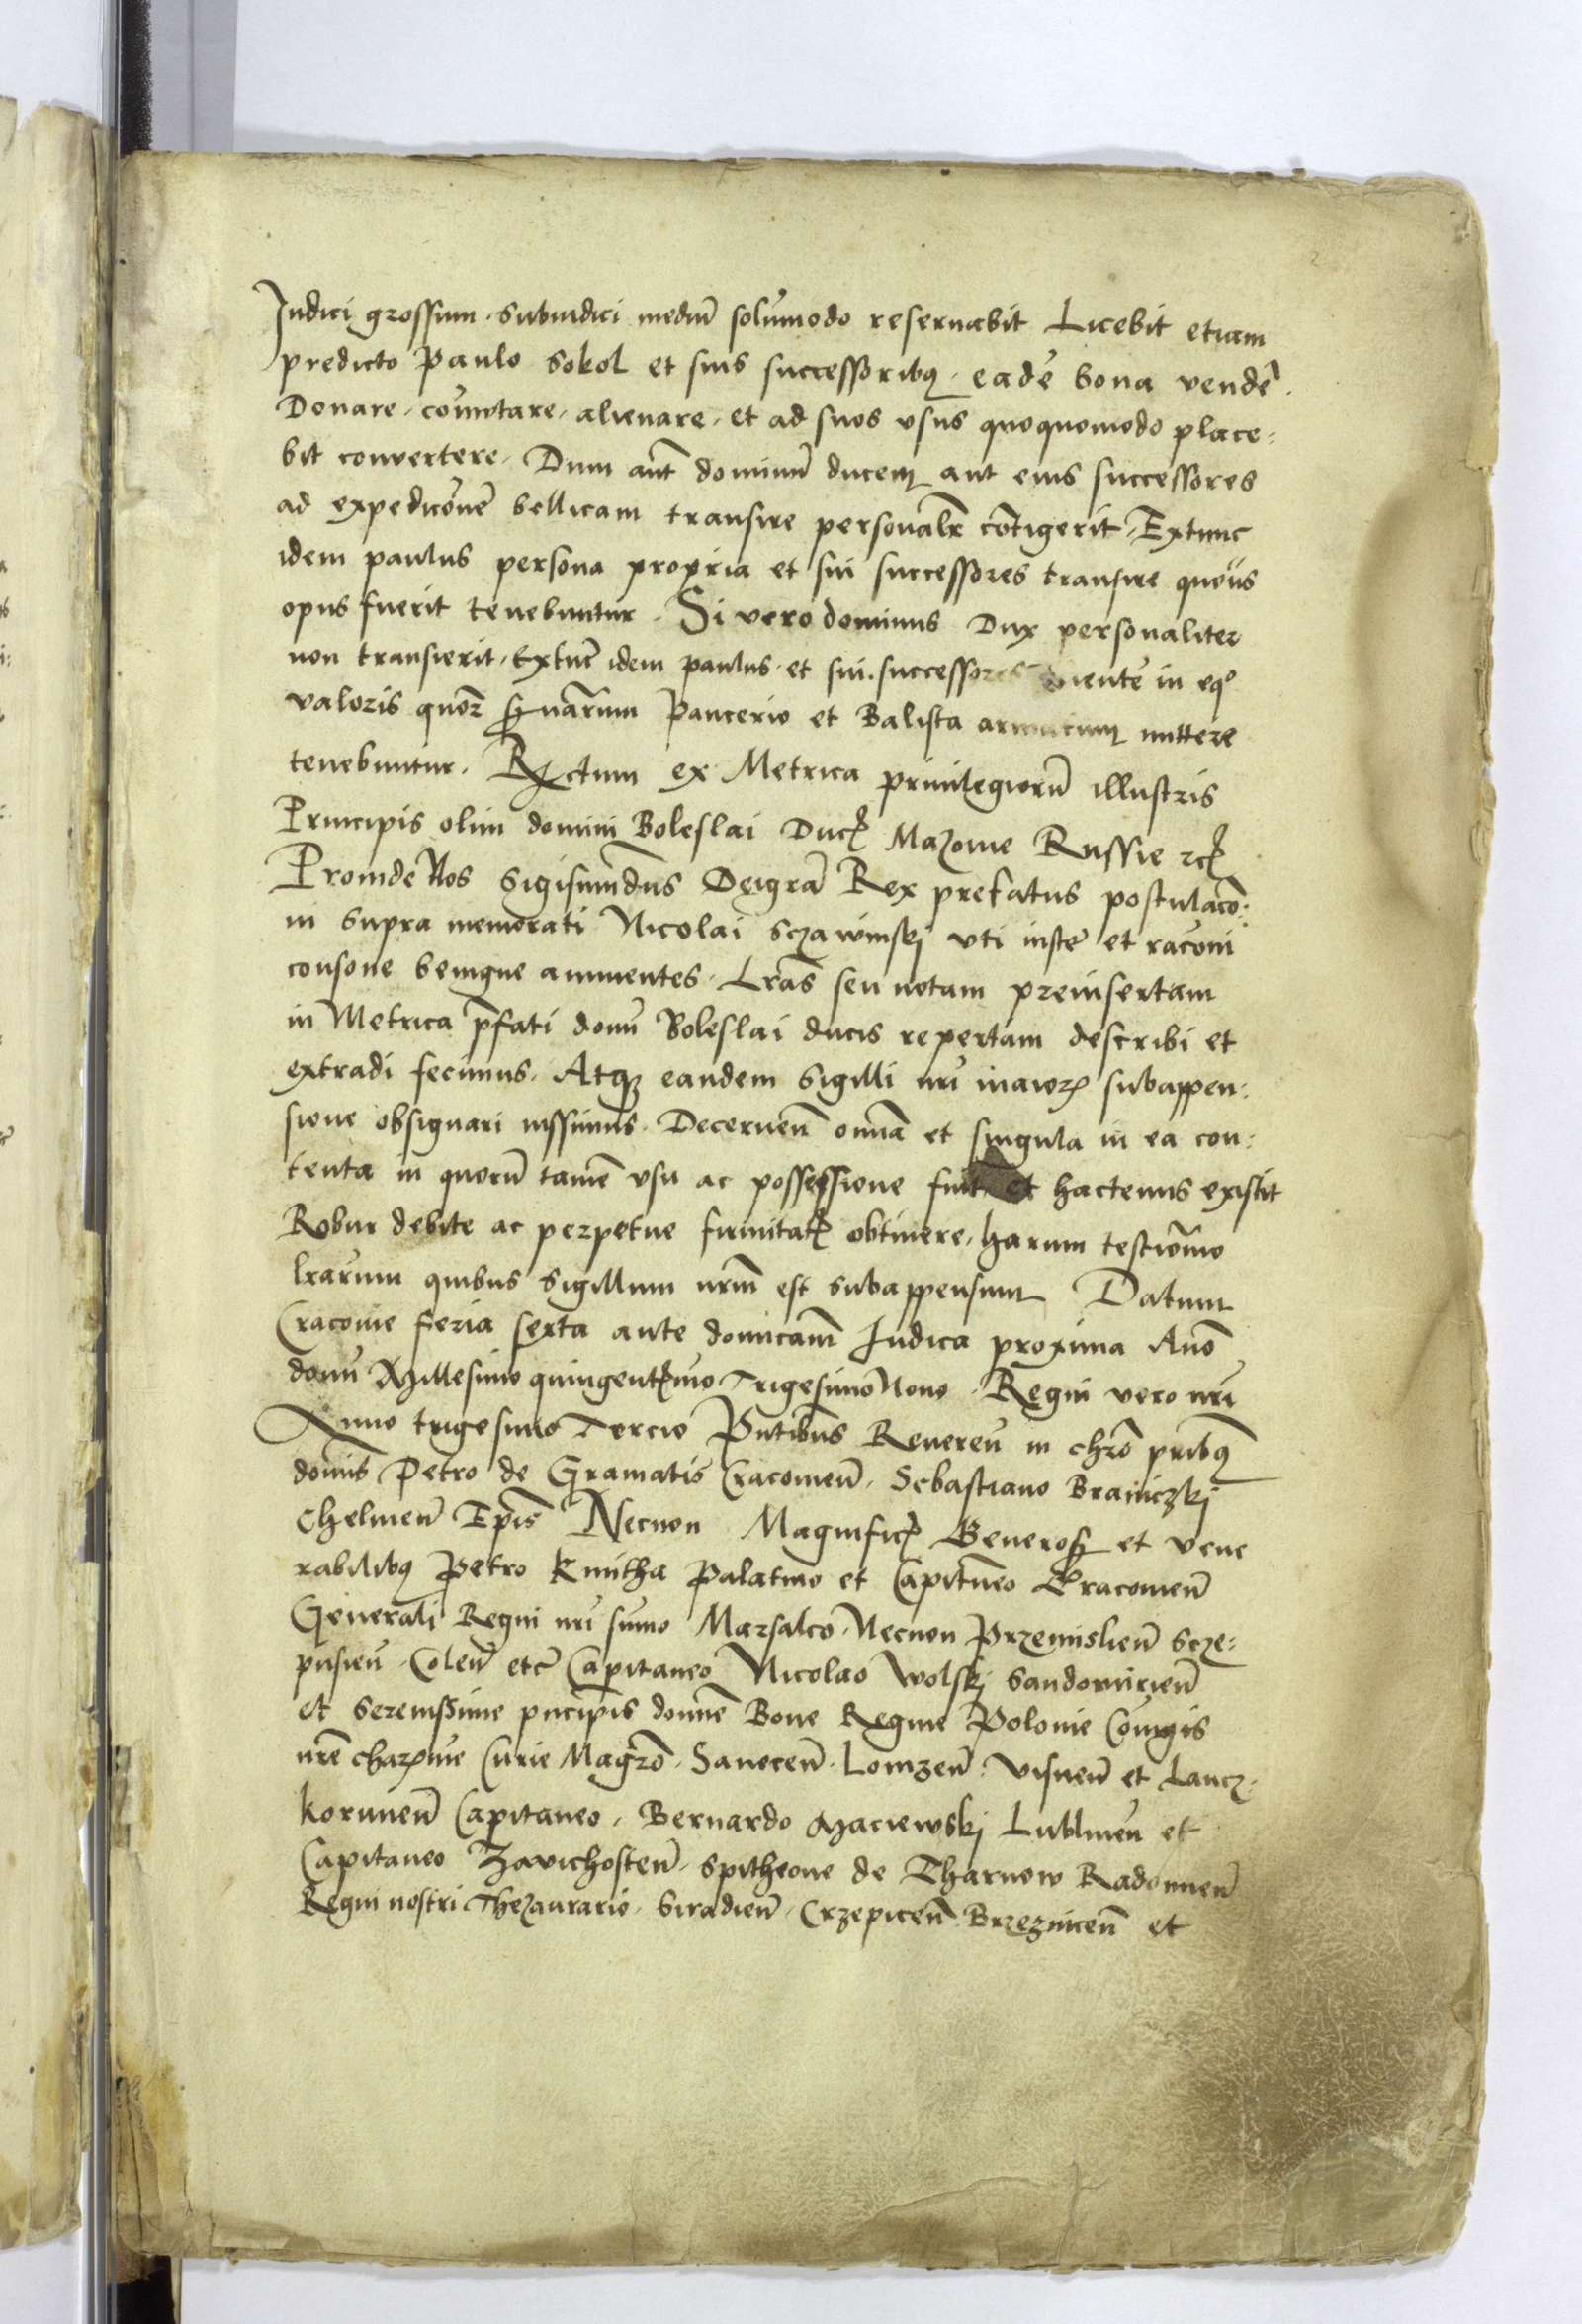 Iudici grossum. Subiudici mediũ solũmodo reseruabit Licebit etiam
predicto Paulo Sokol et suis successoribꝫ. eadē bona vendē.
Donare. cõmutare. alienare. et ad suos vsus quoquomodo place:
bit convertere. Dum aũt dominũ ducem aut eius successores
ad expedicõnē bellicam transire personalr̃ cõtigerit. Extunc
idem paulus persona propria et sui successores transire quoũis
opus fuerit tenebuntur. Si vero dominus Dux personaliter
non transierit. Extũc idem paulus. et sui. successores in eqᵒ
valoris quõr Pancerio et Balista armatum mittere
tenebuntur. Rꝫctum ex Metrica priuilegiorũ illustris
Principis olim domini Boleslai Ducꝭ Mazouie Russie ꝛcꝭ
Proinde Nos Sigismũdus Deigrã Rex prefatus postulacõ:
ni supra memorati Nicolai Sczawinskj vti iuste et racõni
consone benigne annuentes. Lrãs seu notam preinsertam
in Metrica p̃fati domĩ Boleslai ducis repertam describi et
extradi fecimus. Atqꝫ eandem Sigilli nr̃i maiorꝭ subappen:
sione obsignari iussimus. Decerneñ om̃ia et singula in ea con:
tenta in quorũ tamẽ vsu ac possessione fuit et hactenus existit
Robur debite ac perpetue firmitatꝭ obtinere. harum testiõnio
lrãrum quibus Sigillum nrm̃ est subappensum Datum
Cracouie feria sexta ante domicam̃ Iudica proxima Anõ
domĩ Millesimo quingentꝭimo Trigesimo Nono. Regni vero nr̃i
Anno trigesimo Tercio Pñtibus Reuereñ in chrõ pribꝫ
domĩs Petro de Gamratis Cracouieñ. Sebastiano Braniczkj
Chelmeñ Ep̃is Necnon Magnificꝭ Generosꝭ et vene
rabilibꝫ Petro Kmitha Palatino et Capitneõ Cracouieñ
Generali Regni nr̃i sũmo Marsalco. Necnon Przemislieñ Scze:
pusieñ. Coleñ etc̃ Capitaneo Nicolao Wolskj Sandomirieñ
et Serenissime pñcipis domĩe Bone Regine Polonie Cõiugis
nrẽ charꝭime Curie Magrõ. Sanoceñ. Lomzeñ. Visneñ et Lancz:
koruneñ Capitaneo. Bernardo Maciewskj Lublineñ et
Capitaneo Zavichosteñ. Spitheone de Tharnow Radomieñ
Regni nostri Thezaurario. Siradieñ. Crzepiceñ Brzezniceñ et